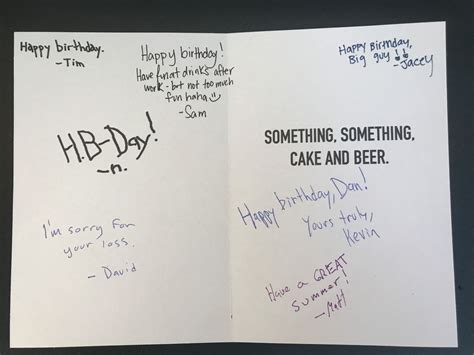 Happy birthday.
-Tim
Happy birthday!
Have fun at drinks after
work - but not too much
fun haha
-Sam
H.B-Day!
-n.
I'm sorry for
your loss.
- David
Happy Birthday,
Big guy!
-Jacey
SOMETHING, SOMETHING,
CAKE AND BEER.
Happy birthday, Dan!
Yours truly,
Kevin
Have a GREAT
summer!
-Matt